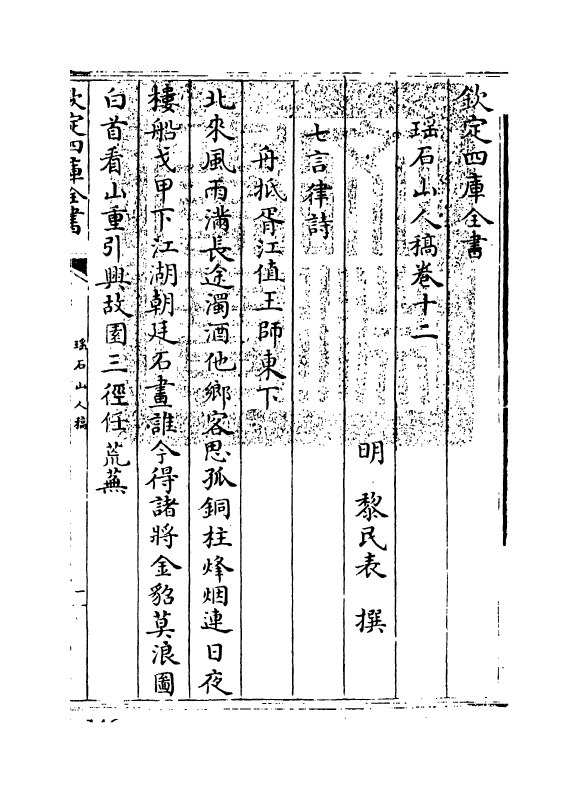 欽定四庫全書
瑤石山人稿卷十二
明 黎民表 撰
七言律詩
舟抵胥江值王師東下
北來風雨滿長途濁酒他鄉客思孤銅柱烽烟連日夜
樓船戈甲下江湖朝廷石畫誰今得諸將金貂莫浪圖
白首看山重引興故園三徑任荒蕪
欽定四庫全書
瑤石山人稿
一